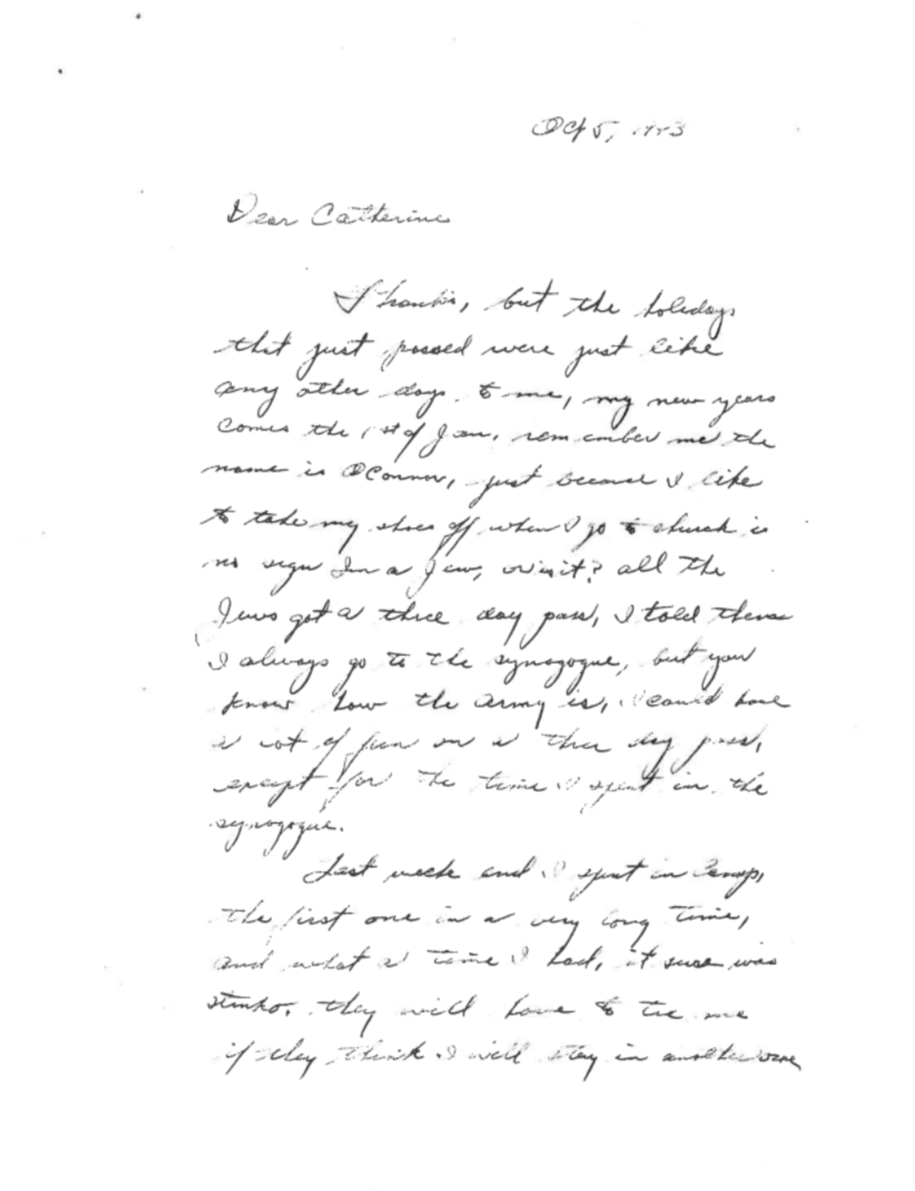 Oct 5, 1943
Dear Catherine
Thanks, but the holidays
that just passed were just like
any other days to me, my new years
comes the 1st of Jan, remember me the
name is OConnor, just because I like
to take my shoes off when I go to church is
no sign Im a Jew, or is it? all the
Jews got a three day pass, I told them
I always go to the synagogue, but you
know how the army is, I could have
a lot of fun on a three day pass,
except for the time I spent in the
synogogue.
Last week end I spent in Camp,
the first one in a very long time,
and what a time I had, it sure was
stinko. they will have to tie me
if they think I will stay in another one